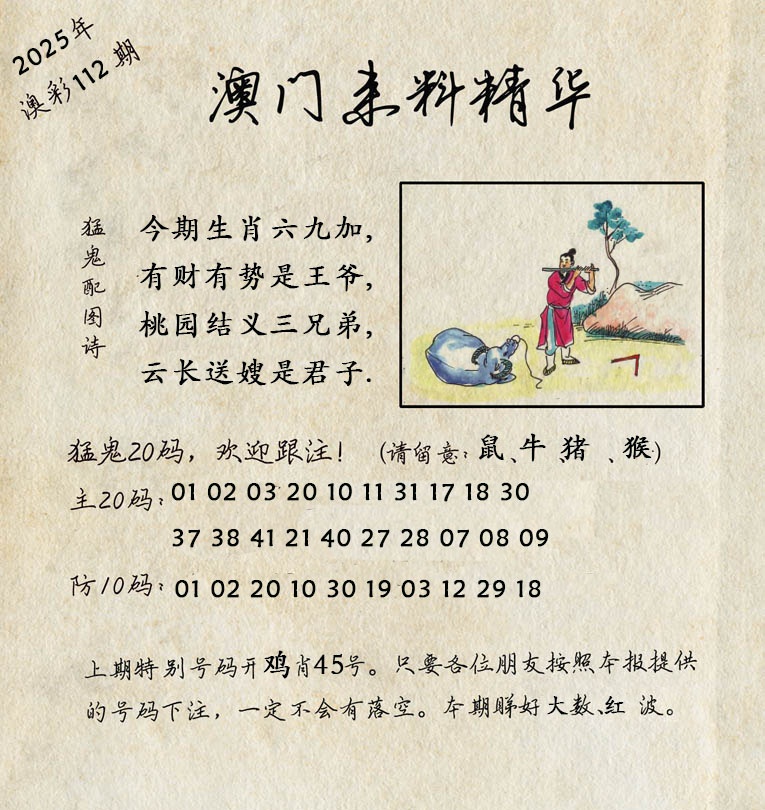 2025年
澳彩112期
澳门来料精华
猛鬼配图诗
今期生肖六九加，
有财有势是王爷，
桃园结义三兄弟，
云长送嫂是君子.
猛鬼20码，欢迎跟注！（请留意：鼠、牛 猪 、猴）
主20码：01 02 03 20 10 11 31 17 18 30
37 38 41 21 40 27 28 07 08 09
防10码：01 02 20 10 30 19 03 12 29 18
上期特别号码开鸡肖45号。只要各位朋友按照本报提供
的号码下注，一定不会有落空。本期睇好大数、红 波。